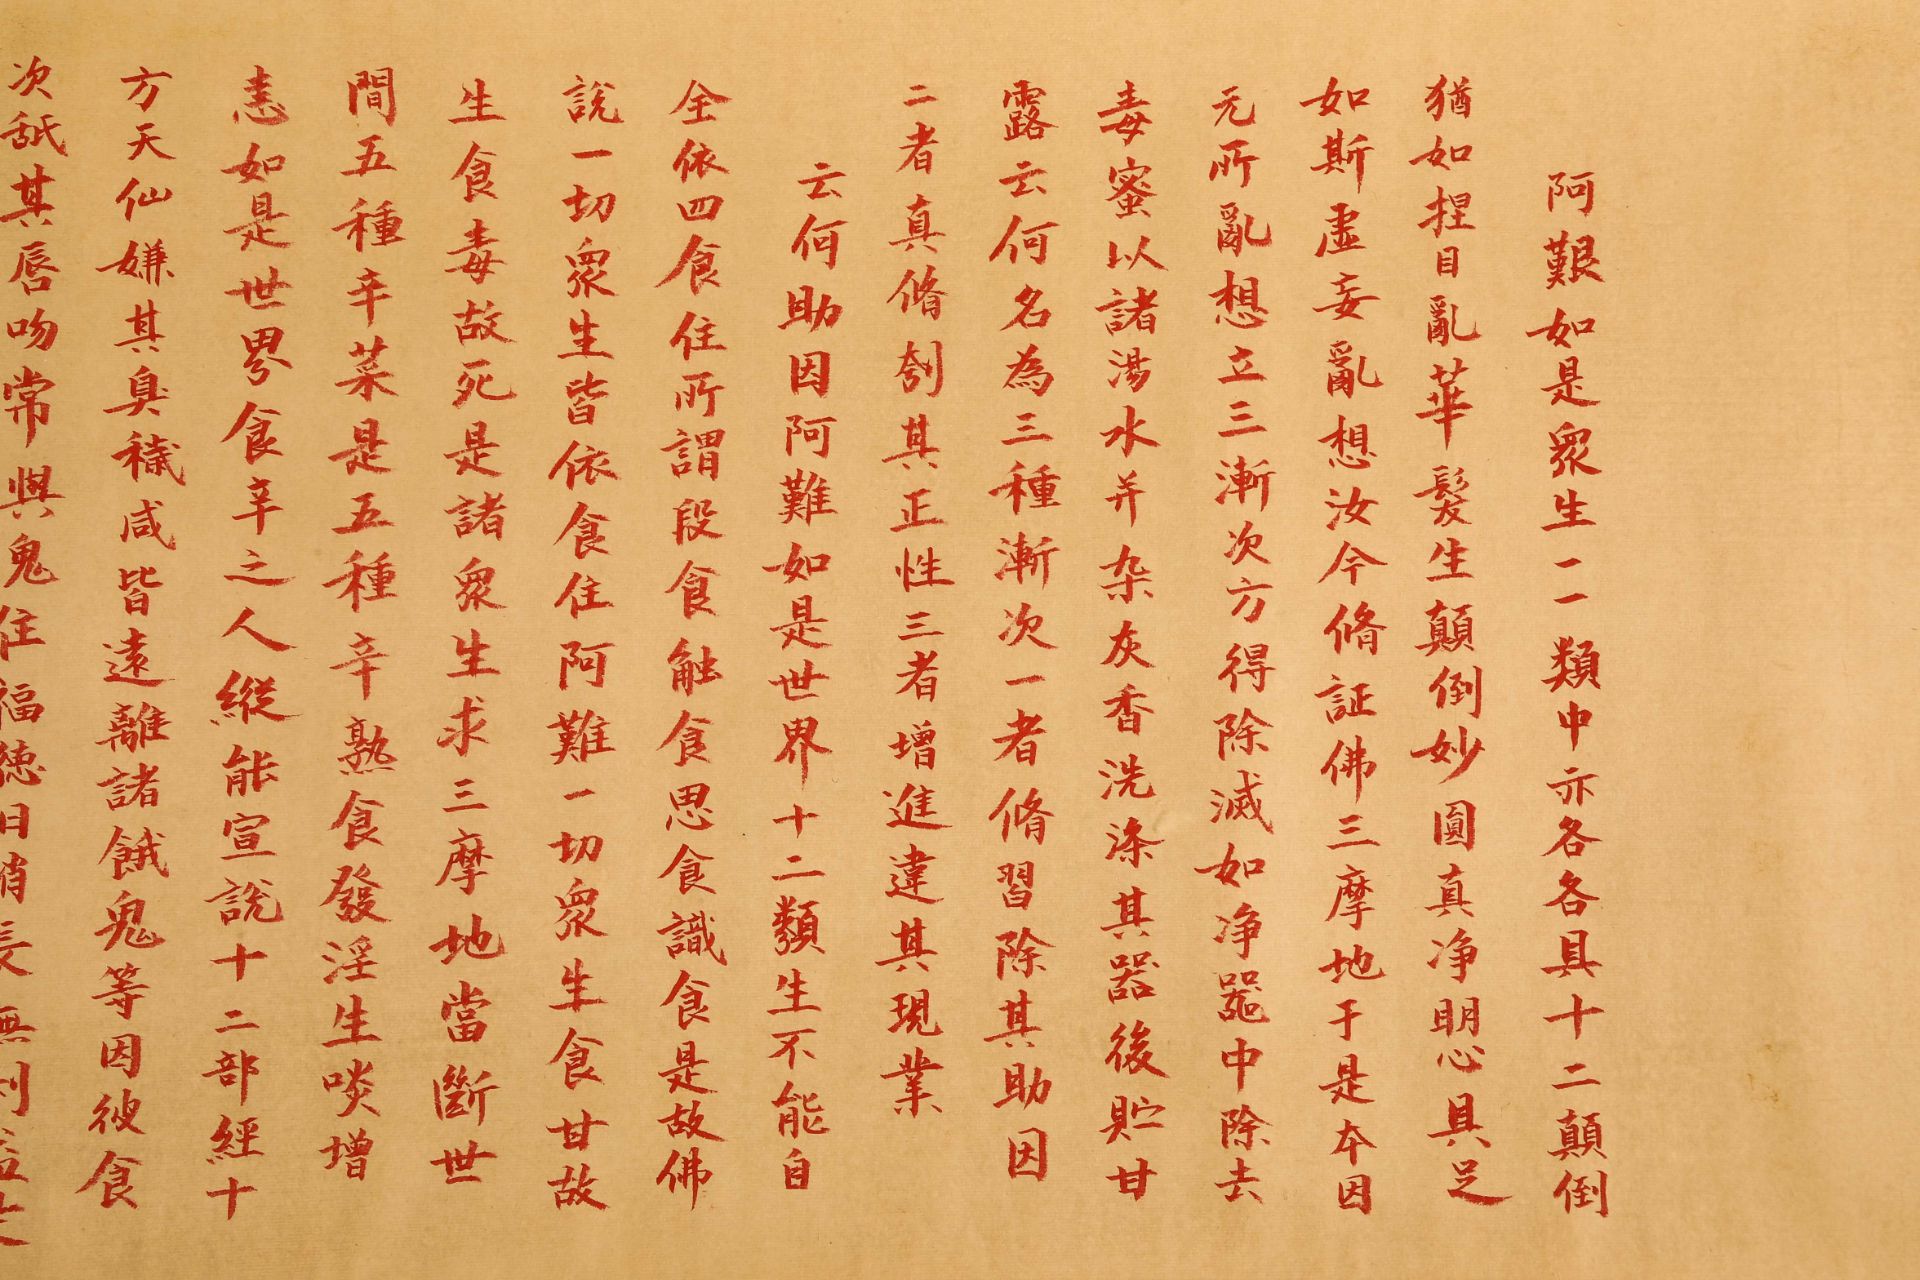 阿難如是眾生一一類中亦各各具十二顛倒
猶如捏目亂華發生顛倒妙圓真净明心具足
如斯虛妄亂想汝今脩証佛三摩地于是本因
元所亂想立三漸次方得除滅如净器中除去
毒蜜以諸湯水并杂灰香洗滌其器後貯甘
露云何名為三種漸次一者脩習除其助因
二者真脩刳其正性三者增進違其現業
云何助因阿難如是世界十二類生不能自
全依四食住所謂段食触食思食識食是故佛
說一切眾生皆依食住阿難一切眾生食甘故
生食毒故死是諸眾生求三摩地當斷世
間五種辛菜是五種辛熟食發淫生啖增
恚如是世界食辛之人縱能宣說十二部經十
方天仙嫌其臭穢咸皆遠離諸餓鬼等因彼食
次舐其唇吻常與鬼住福德日消長無利益